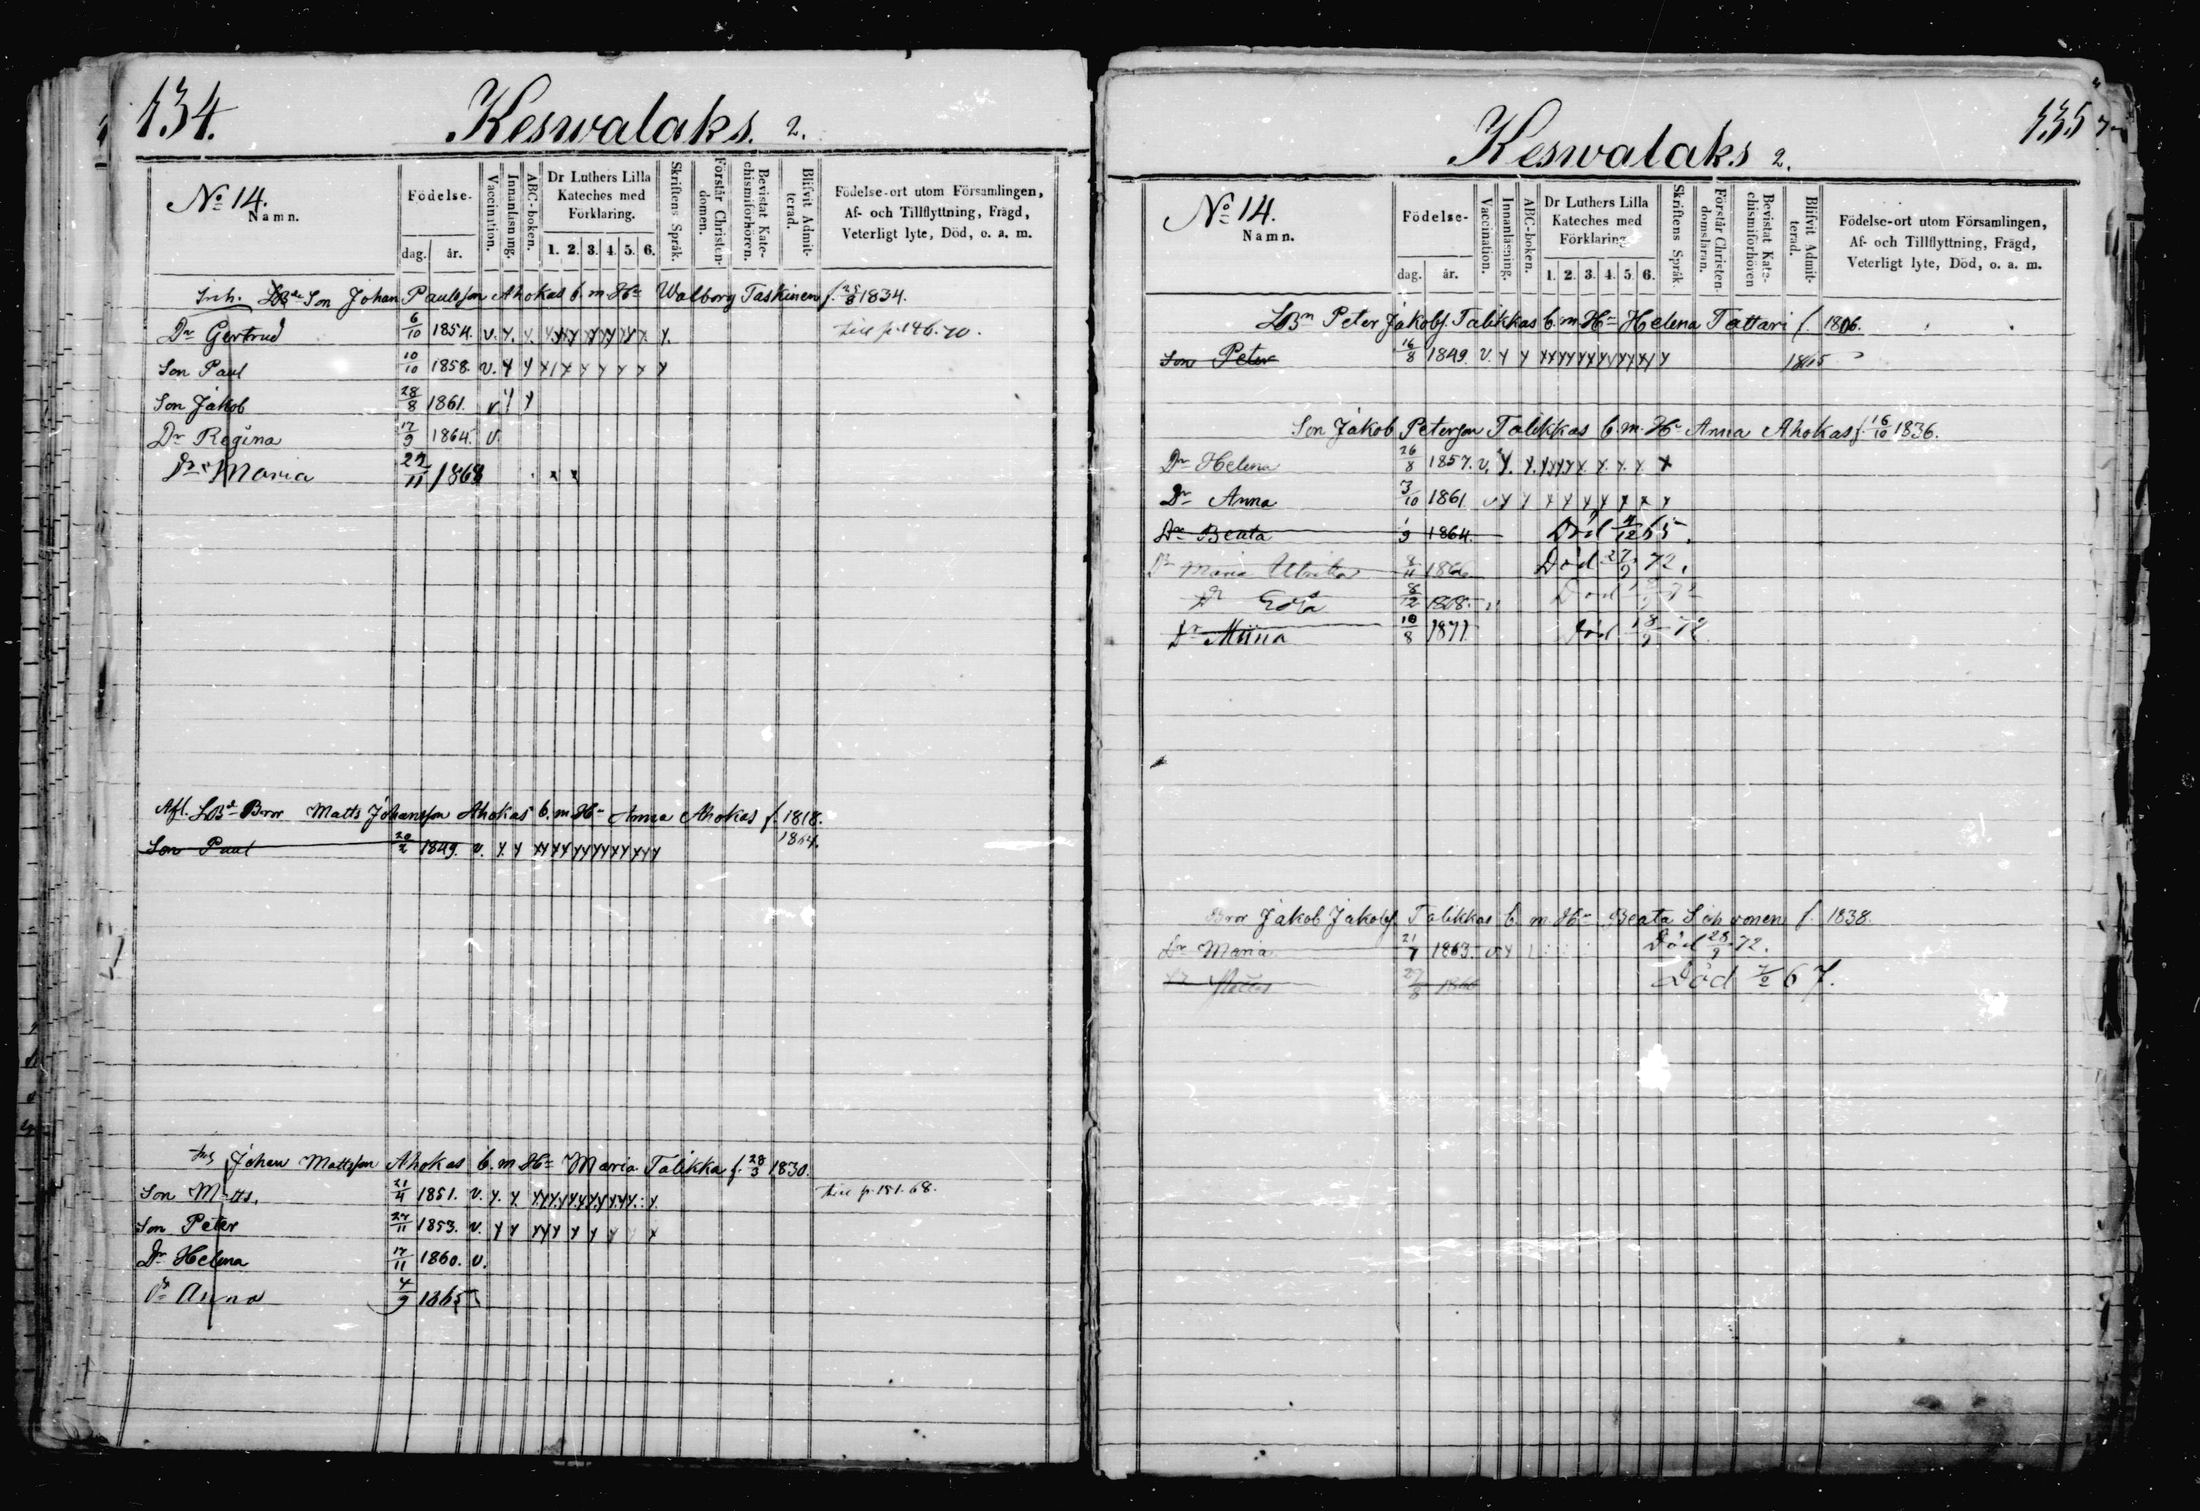 134.
Keswalaks. 2.
No 14.
Namn.
Födelse-
dag. år.
Vaccination.
Innanläsning.
ABC-boken.
Dr Luthers Lilla Kateches med Förklaring.
1. 2. 3. 4. 5. 6.
Skriftens Språk.
Förstår Christendomen.
Bevistat Katechismiförhören.
Blifvit Admitterad.
Födelse-ort utom Församlingen,
Af- och Tillflyttning, Frägd,
Veterligt lyte, Död, o. a. m.
Inh. LBde Son Johan Paulsson Ahokas b. m. Hu Walborg Taskinen f. 25/8 1834.
Dr Gertrud 6/10 1854. v. x. x x x x x x x x x. till p. 146. 70.
Son Paul 10/10 1858. v. x x x x x x x x x
Son Jakob 28/8 1861. v x x
Dr Regina 17/9 1864. v.
Dr Maria 27/11 1868 x x
Afl. LBde Bror Matts Johansson Ahokas b. m. Hu Anna Ahokas f. 1818.
Son Paul 20/2 1849. v. x x x x x x x x x 1864.
Johan Mattsson Ahokas b. m. Hu Maria Talikka f. 28/3 1830.
Son Matts. 21/4 1851. v. x. x. x x x x x x x. till p. 151. 68.
Son Peter 27/11 1853. v. x x x x x x x x x
Dr Helena 17/11 1860. v.
Dr Anna 4/9 1865
135
Keswalaks 2.
No 14.
Namn.
Födelse-
dag. år.
Vaccination.
Innanläsning.
ABC-boken.
Dr Luthers Lilla Kateches med Förklaring
1. 2. 3. 4. 5. 6.
Skriftens Språk.
Förstår Christendomsläran.
Bevistat Katechismiförhören
Blifvit Admitterad.
Födelse-ort utom Församlingen,
Af- och Tillflyttning, Frägd,
Veterligt lyte, Död, o. a. m.
LBn Peter Jakobs. Talikkas b. m. Hu Helena Tattari f. 1806.
Son Peter 16/8 1849. v. x x x x x x x x x 1865
Son Jakob Petersson Talikkas b. m. Hu Anna Ahokas f. 16/10 1836.
Dr Helena 26/8 1857. v. x. x. x x x x. x. x. x
Dr Anna 3/10 1861. v x x x x x x x x x
Dr Beata 1/9 1864. Död 4/12 65.
Dr Maria Ulrika 8/11 1866 Död 27/9 72.
Dr Edla 8/12 1868. v Död
Dr Miina 10/8 1871 Död 18/9 72
Bror Jakob Jakobs. Talikkas b. m. Hu Beata f. 1838.
Dr Maria 21/7 1863. v x Död 28/9 72.
27/8 Död 7/2 67.